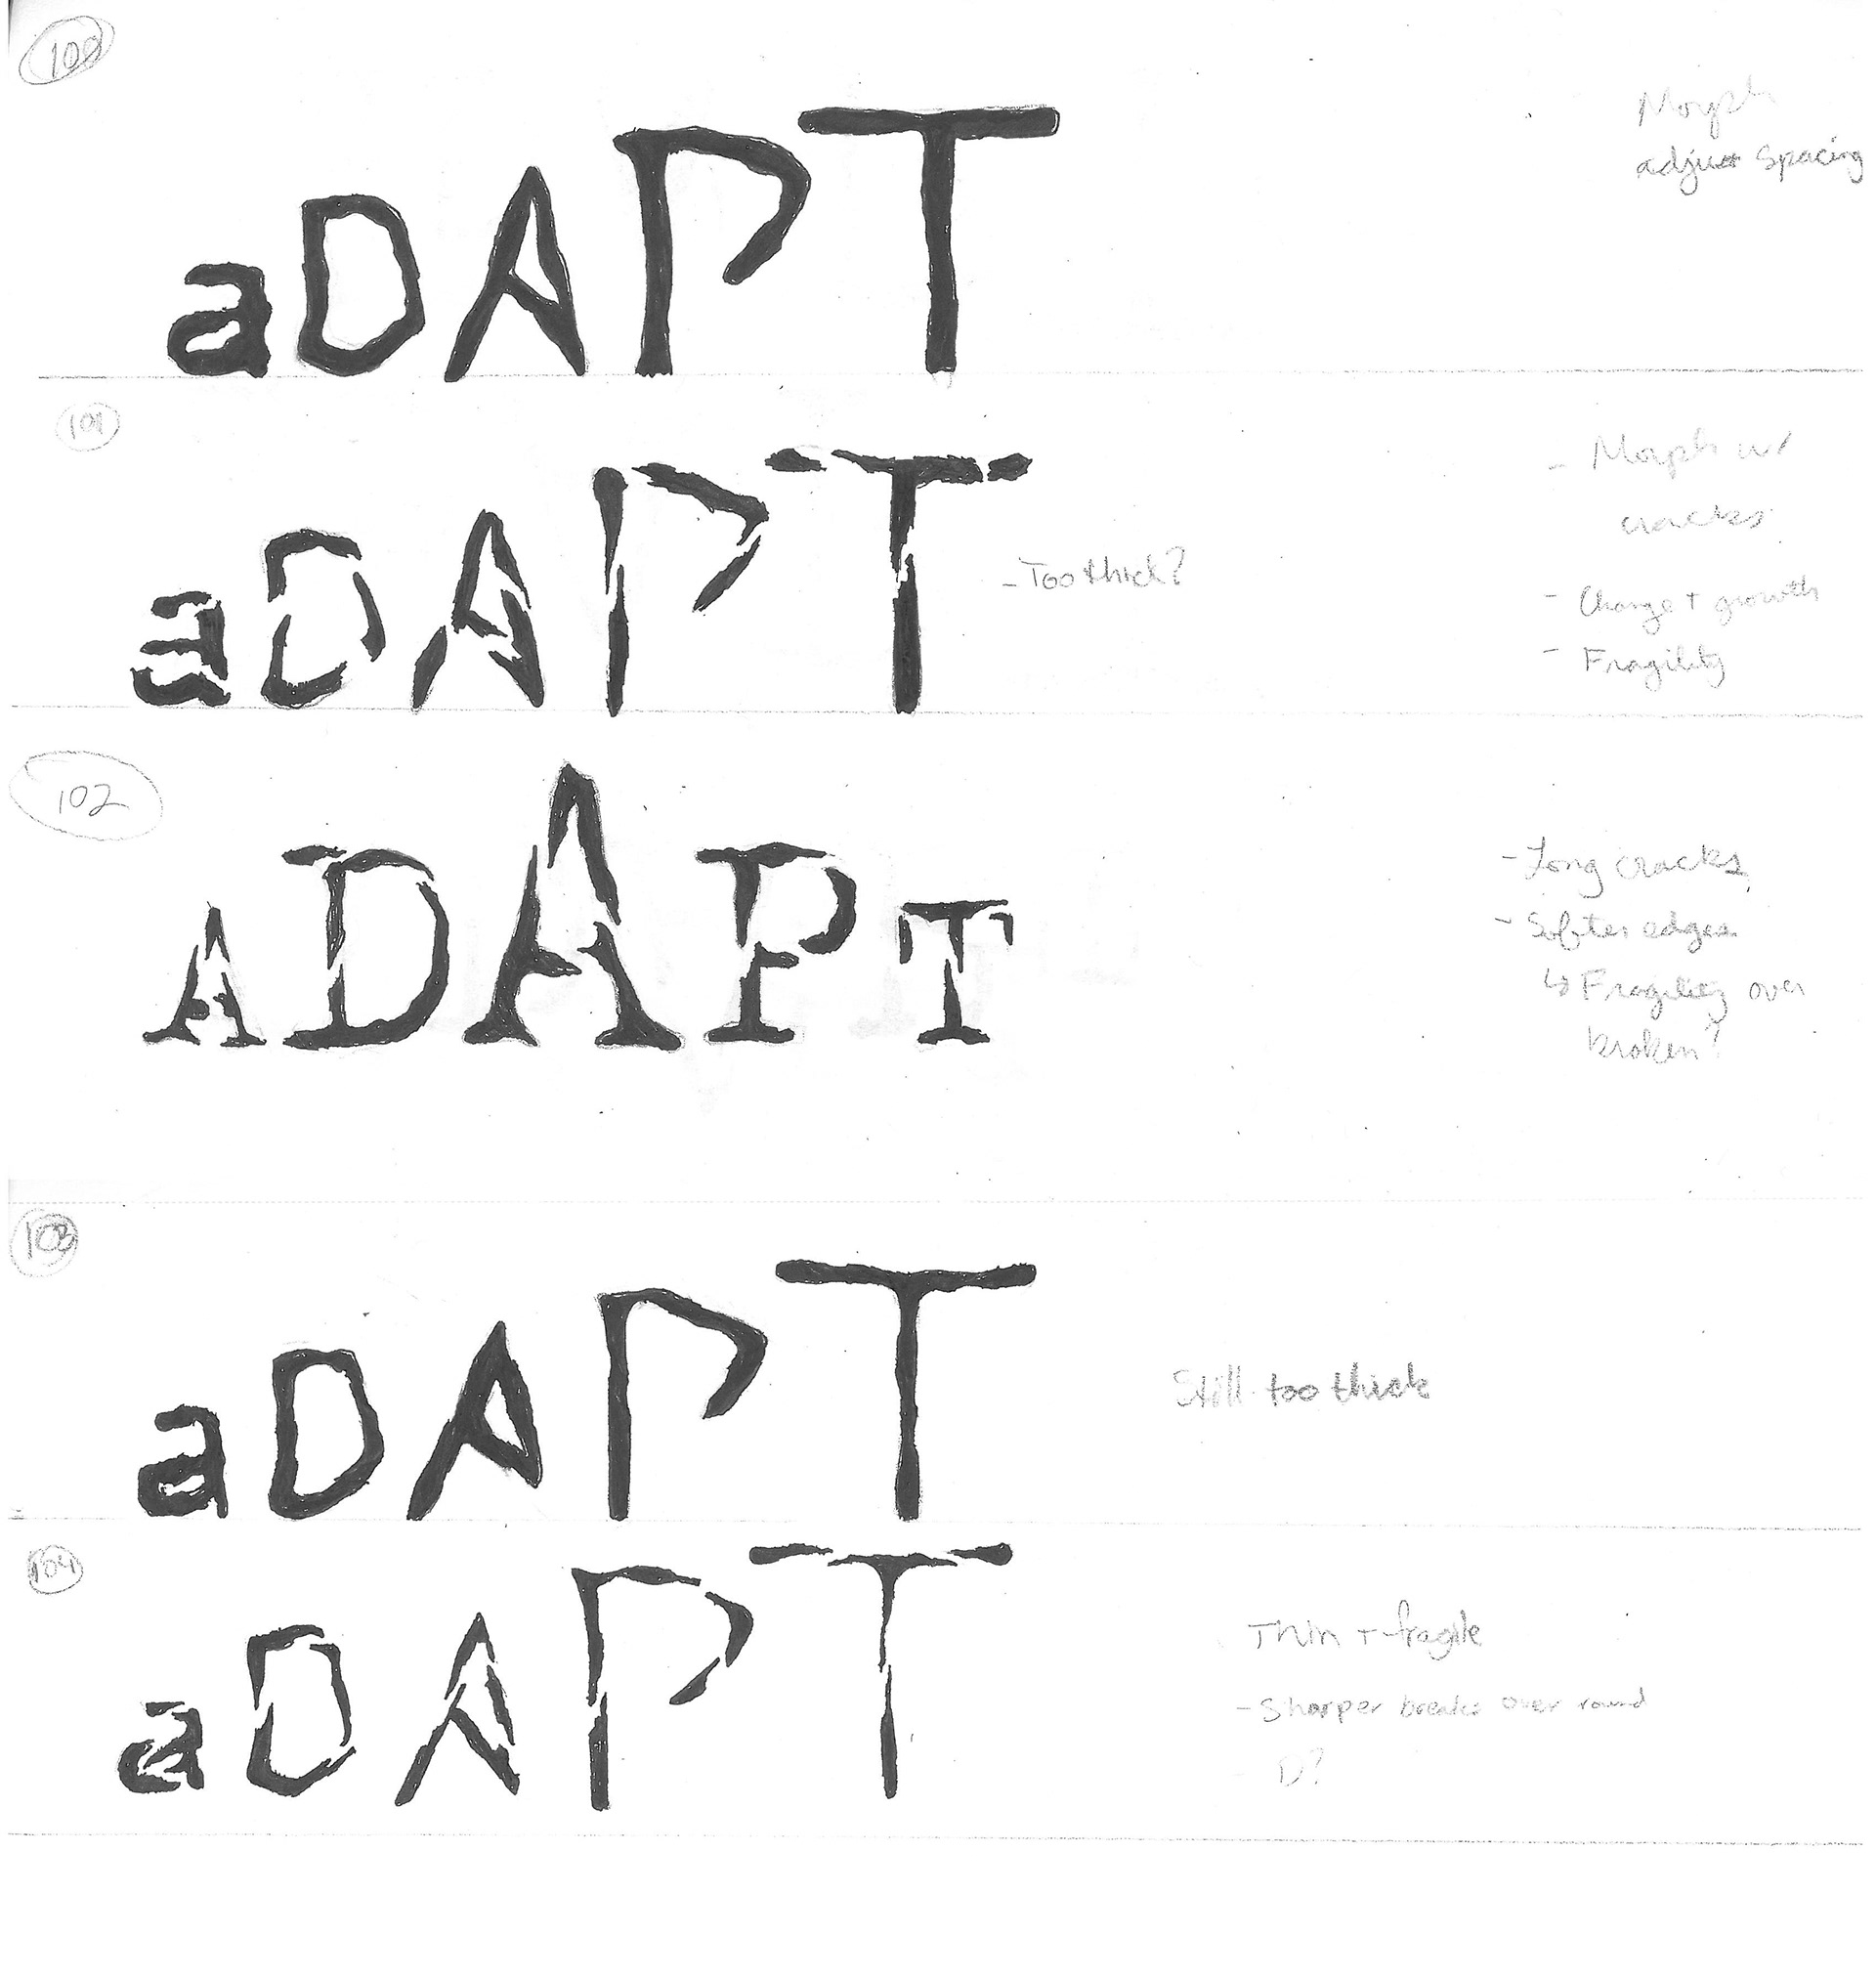 100
aDAPT
Morph
adjust spacing
101
aDAPT
- Too thick?
- Morph w/
cracks
- Change + growth
- Fragility
102
ADAPT
- Long cracks
- Softer edges
↳ Fragility over
broken?
103
aDAPT
Still too thick
104
aDAPT
Thin + fragile
- Sharper breaks over round
D?